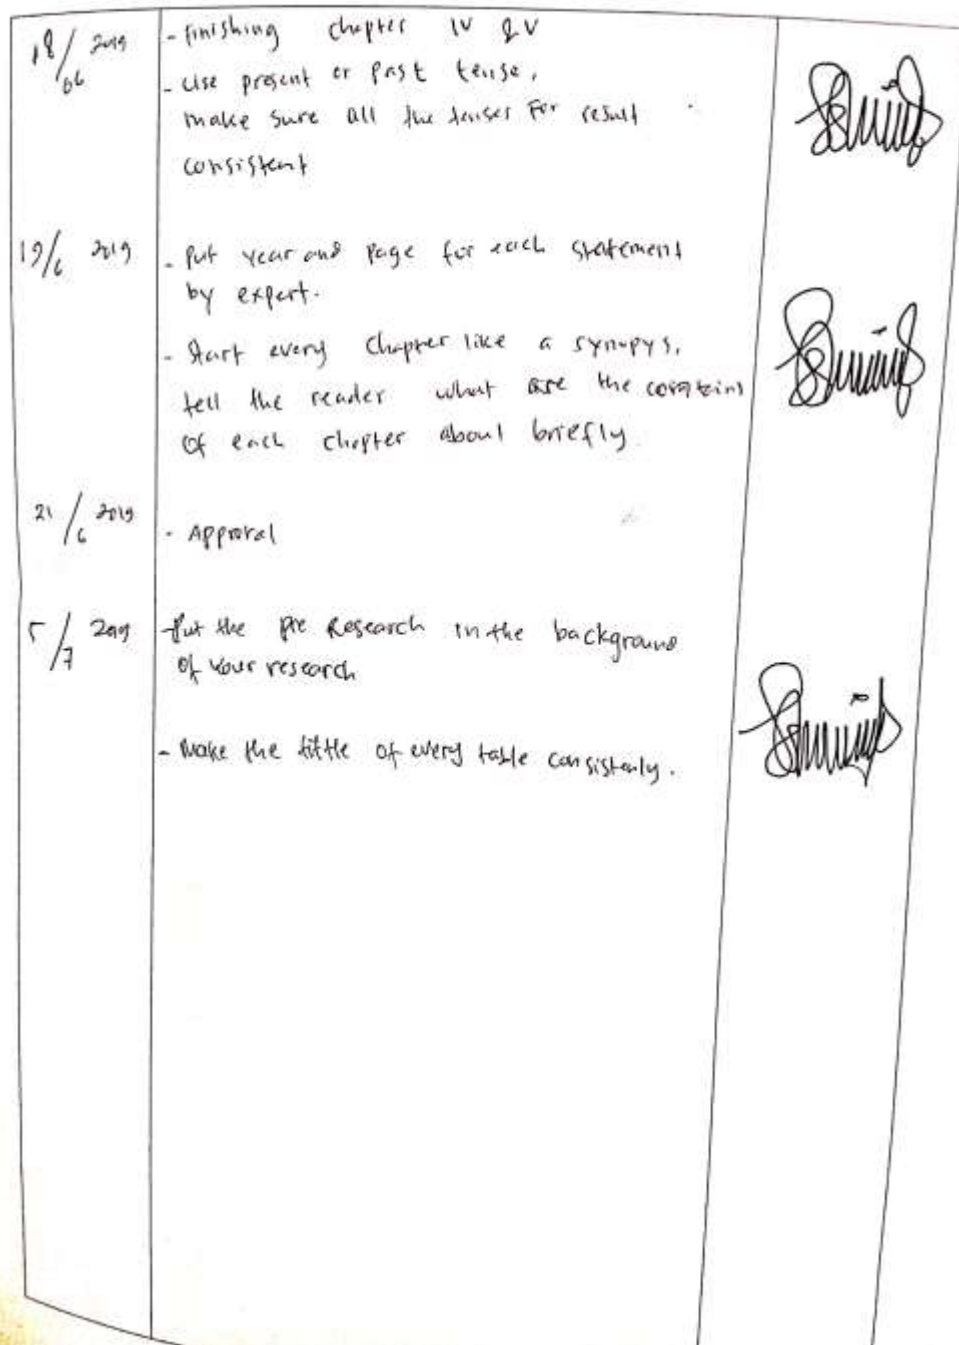 18/06 2019
- Finishing chapter IV & V
- Use present or past tense,
make sure all the tenses for result
consistent
19/6 2019
- Put year and page for each statement
by expert.
- Start every chapter like a synopys,
tell the reader what are the
of each chapter about briefly.
21/6 2019
- Approval
5/7 2019
- Put the pre Research in the background
of your research
- Make the tittle of every table consistenly.